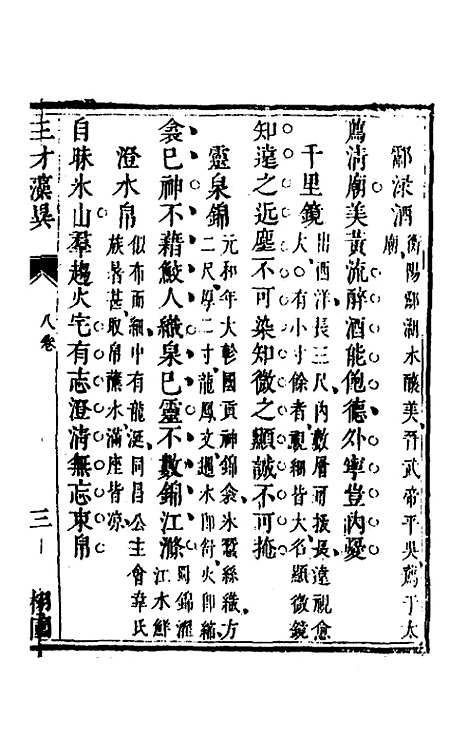 酃淥酒衡陽酃湖水酸美晉武帝平吳薦于太
廟
薦清廟美黃流醉酒能飽德外寧豈內憂
千里鏡出西洋長三尺內數層可摟長遠視愈
大又有小寸餘者視物皆大名顯微鏡
知遠之近塵不可染知微之顯誠不可掩
靈泉錦元和年大軫國貢神錦衾氷蠶絲織方
二尺厚二寸龍鳳文遇水卽舒火卽縮
衾已神不藉鮫人織泉已靈不數錦江滌蜀錦濯
江水鮮
澄水帛似布而細中有龍涎同昌公主會韋氏
族暑甚取帛蘸水滿座皆凉
自昧氷山羣趨火宅有志澄淸無忘束帛
三才藻異
八卷
三
栩園